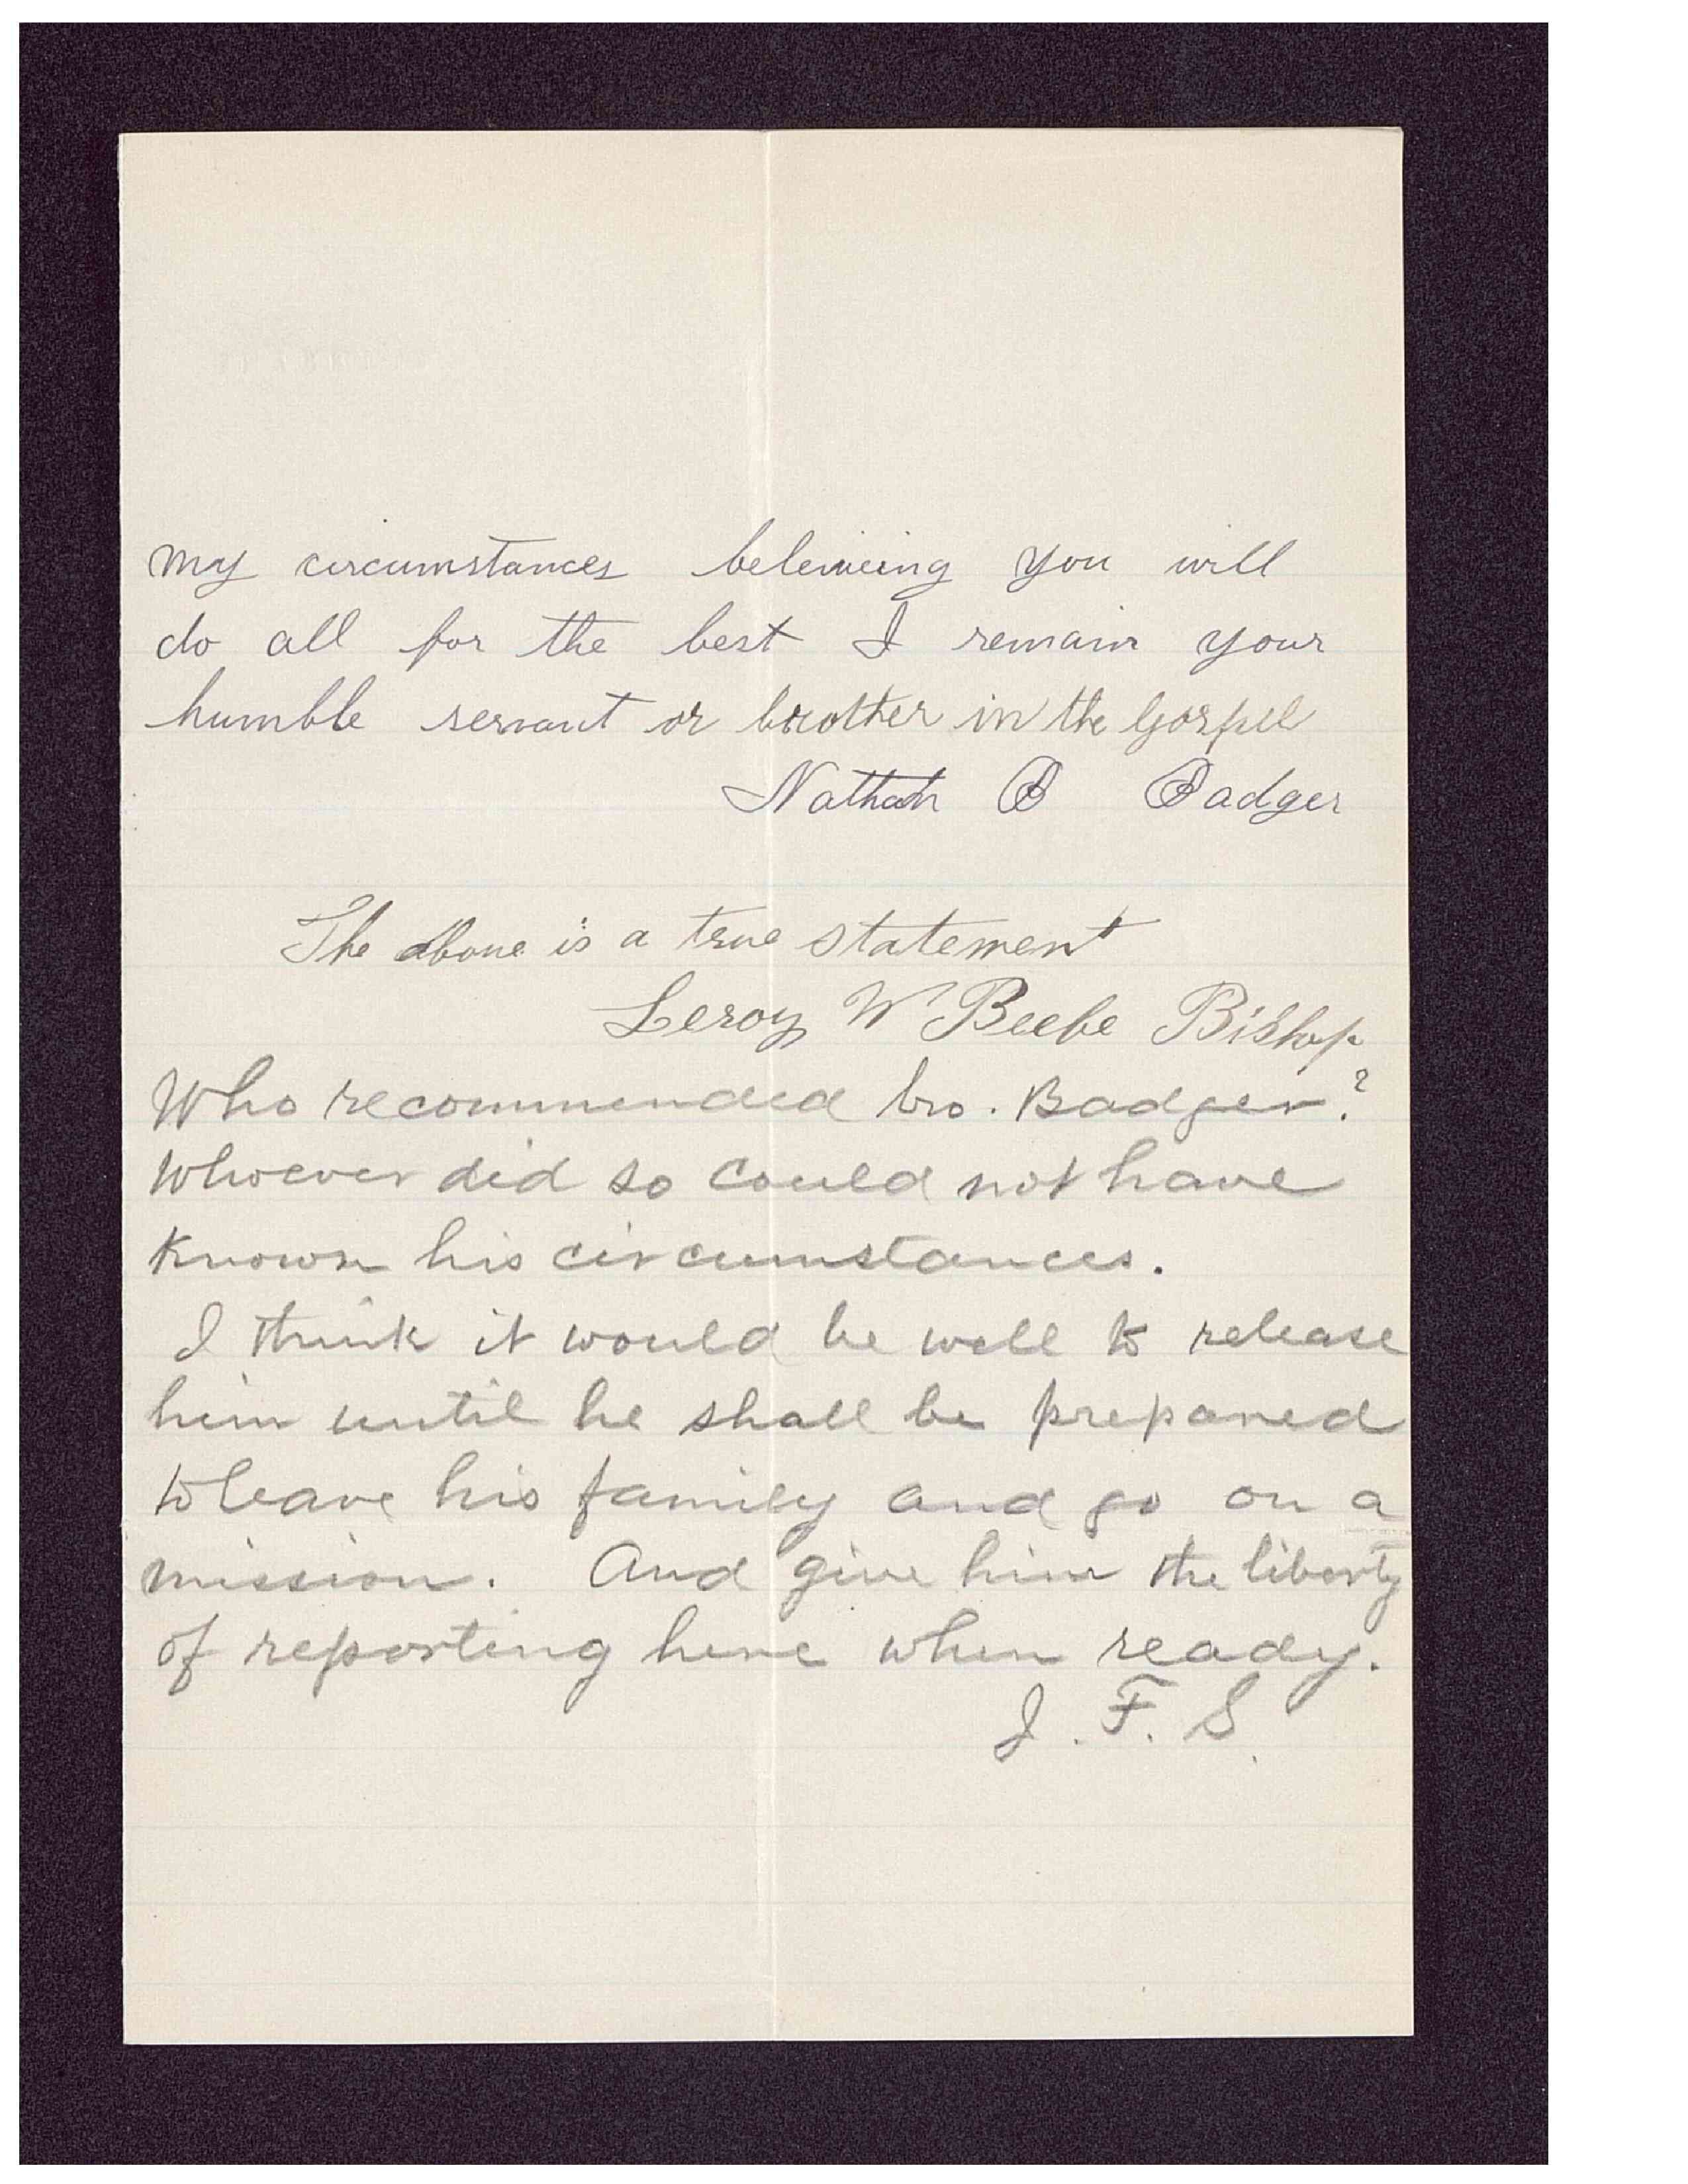 my circumstances beleiveing you will
do all for the best I remain your
humble servant or brother in the Gospel
Nathan B Badger
The above is a true statement
Leroy W Beebe Bishop
Who recommended bro. Badger?
Whoever did so could not have
known his circumstances.
I think it would be well to release
him until he shall be prepared
to leave his family and go on a
mission. And give him the liberty
of reporting here when ready.
J. F. S.